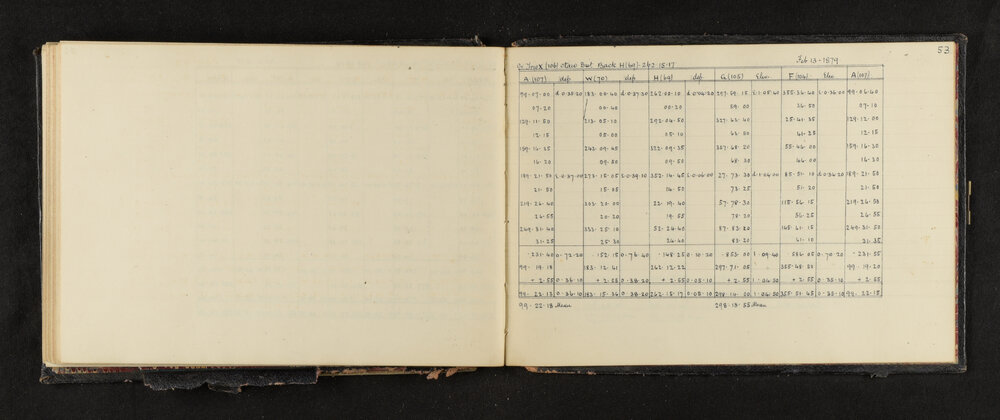 53
Feb 13 · 1879
Back H (69) - 262 · 15 · 17
A (107) dep W (70) dep H (69) dep G (105) Elev. F (104) Elev. A (107)
99 · 07 · 00 d 0 · 35 · 20 183 · 00 · 40 d 0 · 37 · 30 262 · 00 · 10 d 0 · 04 · 20 297 · 59 · 15 355 · 36 · 40 99 · 06 · 40
07 · 20 00 · 40 00 · 20 59 · 00 36 · 50 07 · 10
129 · 11 · 50 213 · 05 · 10 292 · 04 · 50 327 · 63 · 40 25 · 41 · 35 129 · 12 · 00
12 · 15 05 · 00 05 · 10 63 · 50 41 · 25 12 · 15
159 · 16 · 35 243 · 09 · 45 322 · 09 · 35 357 · 68 · 20 55 · 46 · 00 159 · 16 · 30
16 · 20 09 · 50 09 · 50 68 · 30 46 · 00 16 · 30
189 · 21 · 50 273 · 15 · 05 352 · 14 · 45 27 · 73 · 30 85 · 51 · 10 189 · 21 · 50
21 · 50 15 · 05 14 · 50 73 · 25 51 · 20 21 · 50
219 · 26 · 40 303 · 20 · 00 22 · 19 · 40 57 · 78 · 30 115 · 56 · 15 219 · 26 · 50
26 · 55 20 · 20 19 · 55 78 · 20 56 · 25 26 · 55
249 · 31 · 40 333 · 25 · 10 52 · 24 · 40 87 · 83 · 20 145 · 61 · 15 249 · 31 · 50
31 · 25 25 · 30 24 · 40 83 · 20 61 · 10 31 · 35
· 231 · 40 0 · 72 · 20 · 152 · 15 0 · 76 · 40 · 148 · 25 0 · 10 · 20 · 853 · 00 1 · 09 · 40 · 586 · 05 0 · 70 · 20 · 231 · 55
99 · 19 · 18 183 · 12 · 41 262 · 12 · 22 297 · 71 · 05 355 · 48 · 50 99 · 19 · 20
+ 2 · 55 0 · 36 · 10 + 2 · 55 0 · 38 · 20 + 2 · 55 0 · 05 · 10 + 2 · 55 1 · 04 · 50 + 2 · 55 0 · 35 · 10 + 2 · 55
99 · 22 · 13 0 · 36 · 10 183 · 15 · 36 0 · 38 · 20 262 · 15 · 17 0 · 05 · 10 298 · 14 · 00 1 · 04 · 50 355 · 51 · 45 0 · 35 · 10 99 · 22 · 15
99 · 22 · 13 Mean 298 · 13 · 55 Mean